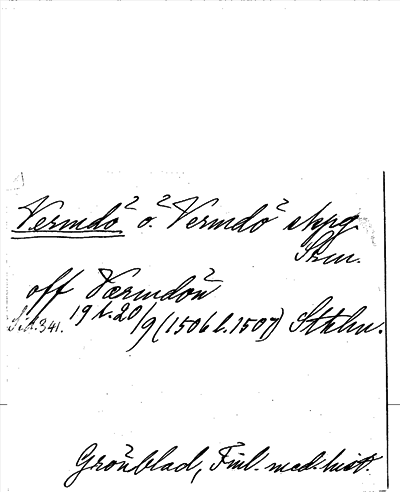 Vermdö o. Vermdö skpg.
Stm.
off Værmdön
Sid. 341. 19 l. 20/9 (1506 l. 1507) Sthlm.
Grönblad, Finl. med. hist.